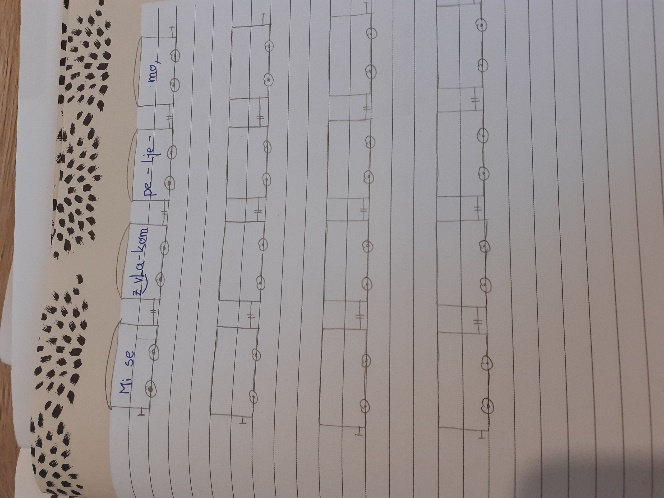 Mi se z vla-kom pe-lje-mo,